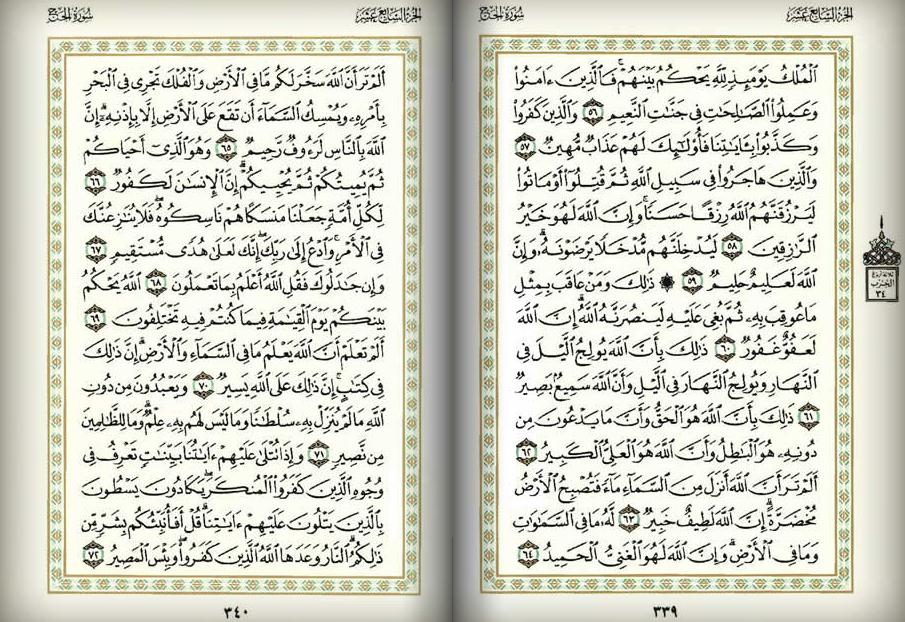 الجزء السابع عشر
سورة الحج
ٱلۡمُلۡكُ يَوۡمَئِذٖ لِّلَّهِ يَحۡكُمُ بَيۡنَهُمۡۚ فَٱلَّذِينَ ءَامَنُواْ
وَعَمِلُواْ ٱلصَّٰلِحَٰتِ فِي جَنَّٰتِ ٱلنَّعِيمِ ٥٦ وَٱلَّذِينَ كَفَرُواْ
وَكَذَّبُواْ بِـَٔايَٰتِنَا فَأُوْلَٰٓئِكَ لَهُمۡ عَذَابٞ مُّهِينٞ ٥٧
وَٱلَّذِينَ هَاجَرُواْ فِي سَبِيلِ ٱللَّهِ ثُمَّ قُتِلُوٓاْ أَوۡ مَاتُواْ
لَيَرۡزُقَنَّهُمُ ٱللَّهُ رِزۡقًا حَسَنٗاۚ وَإِنَّ ٱللَّهَ لَهُوَ خَيۡرُ
ٱلرَّٰزِقِينَ ٥٨ لَيُدۡخِلَنَّهُم مُّدۡخَلٗا يَرۡضَوۡنَهُۥۚ وَإِنَّ
ٱللَّهَ لَعَلِيمٌ حَلِيمٞ ٥٩ ۞ ذَٰلِكَۖ وَمَنۡ عَاقَبَ بِمِثۡلِ
مَا عُوقِبَ بِهِۦ ثُمَّ بُغِيَ عَلَيۡهِ لَيَنصُرَنَّهُ ٱللَّهُۚ إِنَّ ٱللَّهَ
لَعَفُوٌّ غَفُورٞ ٦٠ ذَٰلِكَ بِأَنَّ ٱللَّهَ يُولِجُ ٱلَّيۡلَ فِي
ٱلنَّهَارِ وَيُولِجُ ٱلنَّهَارَ فِي ٱلَّيۡلِ وَأَنَّ ٱللَّهَ سَمِيعُۢ بَصِيرٞ
٦١ ذَٰلِكَ بِأَنَّ ٱللَّهَ هُوَ ٱلۡحَقُّ وَأَنَّ مَا يَدۡعُونَ مِن
دُونِهِۦ هُوَ ٱلۡبَٰطِلُ وَأَنَّ ٱللَّهَ هُوَ ٱلۡعَلِيُّ ٱلۡكَبِيرُ ٦٢
أَلَمۡ تَرَ أَنَّ ٱللَّهَ أَنزَلَ مِنَ ٱلسَّمَآءِ مَآءٗ فَتُصۡبِحُ ٱلۡأَرۡضُ
مُخۡضَرَّةًۚ إِنَّ ٱللَّهَ لَطِيفٌ خَبِيرٞ ٦٣ لَّهُۥ مَا فِي ٱلسَّمَٰوَٰتِ
وَمَا فِي ٱلۡأَرۡضِۚ وَإِنَّ ٱللَّهَ لَهُوَ ٱلۡغَنِيُّ ٱلۡحَمِيدُ ٦٤
٣٣٩
ثلاثة أرباع
الحزب
٣٤
الجزء السابع عشر
سورة الحج
أَلَمۡ تَرَ أَنَّ ٱللَّهَ سَخَّرَ لَكُم مَّا فِي ٱلۡأَرۡضِ وَٱلۡفُلۡكَ تَجۡرِي فِي ٱلۡبَحۡرِ
بِأَمۡرِهِۦ وَيُمۡسِكُ ٱلسَّمَآءَ أَن تَقَعَ عَلَى ٱلۡأَرۡضِ إِلَّا بِإِذۡنِهِۦٓۚ إِنَّ
ٱللَّهَ بِٱلنَّاسِ لَرَءُوفٞ رَّحِيمٞ ٦٥ وَهُوَ ٱلَّذِيٓ أَحۡيَاكُمۡ
ثُمَّ يُمِيتُكُمۡ ثُمَّ يُحۡيِيكُمۡۗ إِنَّ ٱلۡإِنسَٰنَ لَكَفُورٞ ٦٦
لِّكُلِّ أُمَّةٖ جَعَلۡنَا مَنسَكًا هُمۡ نَاسِكُوهُۖ فَلَا يُنَٰزِعُنَّكَ
فِي ٱلۡأَمۡرِۚ وَٱدۡعُ إِلَىٰ رَبِّكَۖ إِنَّكَ لَعَلَىٰ هُدٗى مُّسۡتَقِيمٖ ٦٧
وَإِن جَٰدَلُوكَ فَقُلِ ٱللَّهُ أَعۡلَمُ بِمَا تَعۡمَلُونَ ٦٨ ٱللَّهُ يَحۡكُمُ
بَيۡنَكُمۡ يَوۡمَ ٱلۡقِيَٰمَةِ فِيمَا كُنتُمۡ فِيهِ تَخۡتَلِفُونَ ٦٩
أَلَمۡ تَعۡلَمۡ أَنَّ ٱللَّهَ يَعۡلَمُ مَا فِي ٱلسَّمَآءِ وَٱلۡأَرۡضِۚ إِنَّ ذَٰلِكَ
فِي كِتَٰبٍۚ إِنَّ ذَٰلِكَ عَلَى ٱللَّهِ يَسِيرٞ ٧٠ وَيَعۡبُدُونَ مِن دُونِ
ٱللَّهِ مَا لَمۡ يُنَزِّلۡ بِهِۦ سُلۡطَٰنٗا وَمَا لَيۡسَ لَهُم بِهِۦ عِلۡمٞۗ وَمَا لِلظَّٰلِمِينَ
مِن نَّصِيرٖ ٧١ وَإِذَا تُتۡلَىٰ عَلَيۡهِمۡ ءَايَٰتُنَا بَيِّنَٰتٖ تَعۡرِفُ فِي
وُجُوهِ ٱلَّذِينَ كَفَرُواْ ٱلۡمُنكَرَۖ يَكَادُونَ يَسۡطُونَ
بِٱلَّذِينَ يَتۡلُونَ عَلَيۡهِمۡ ءَايَٰتِنَاۗ قُلۡ أَفَأُنَبِّئُكُم بِشَرّٖ مِّن
ذَٰلِكُمُۚ ٱلنَّارُ وَعَدَهَا ٱللَّهُ ٱلَّذِينَ كَفَرُواْۖ وَبِئۡسَ ٱلۡمَصِيرُ ٧٢
٣٤٠